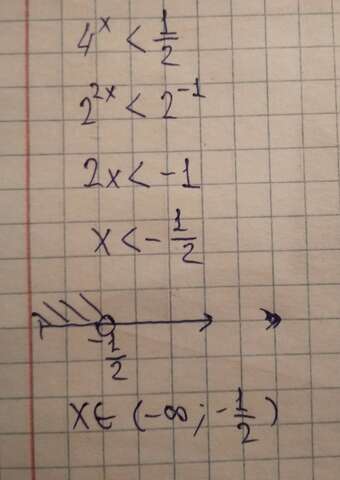 4^x < 1/2
2^{2x} < 2^{-1}
2x < -1
x < -1/2
-1/2
x ∈ (-∞; -1/2)